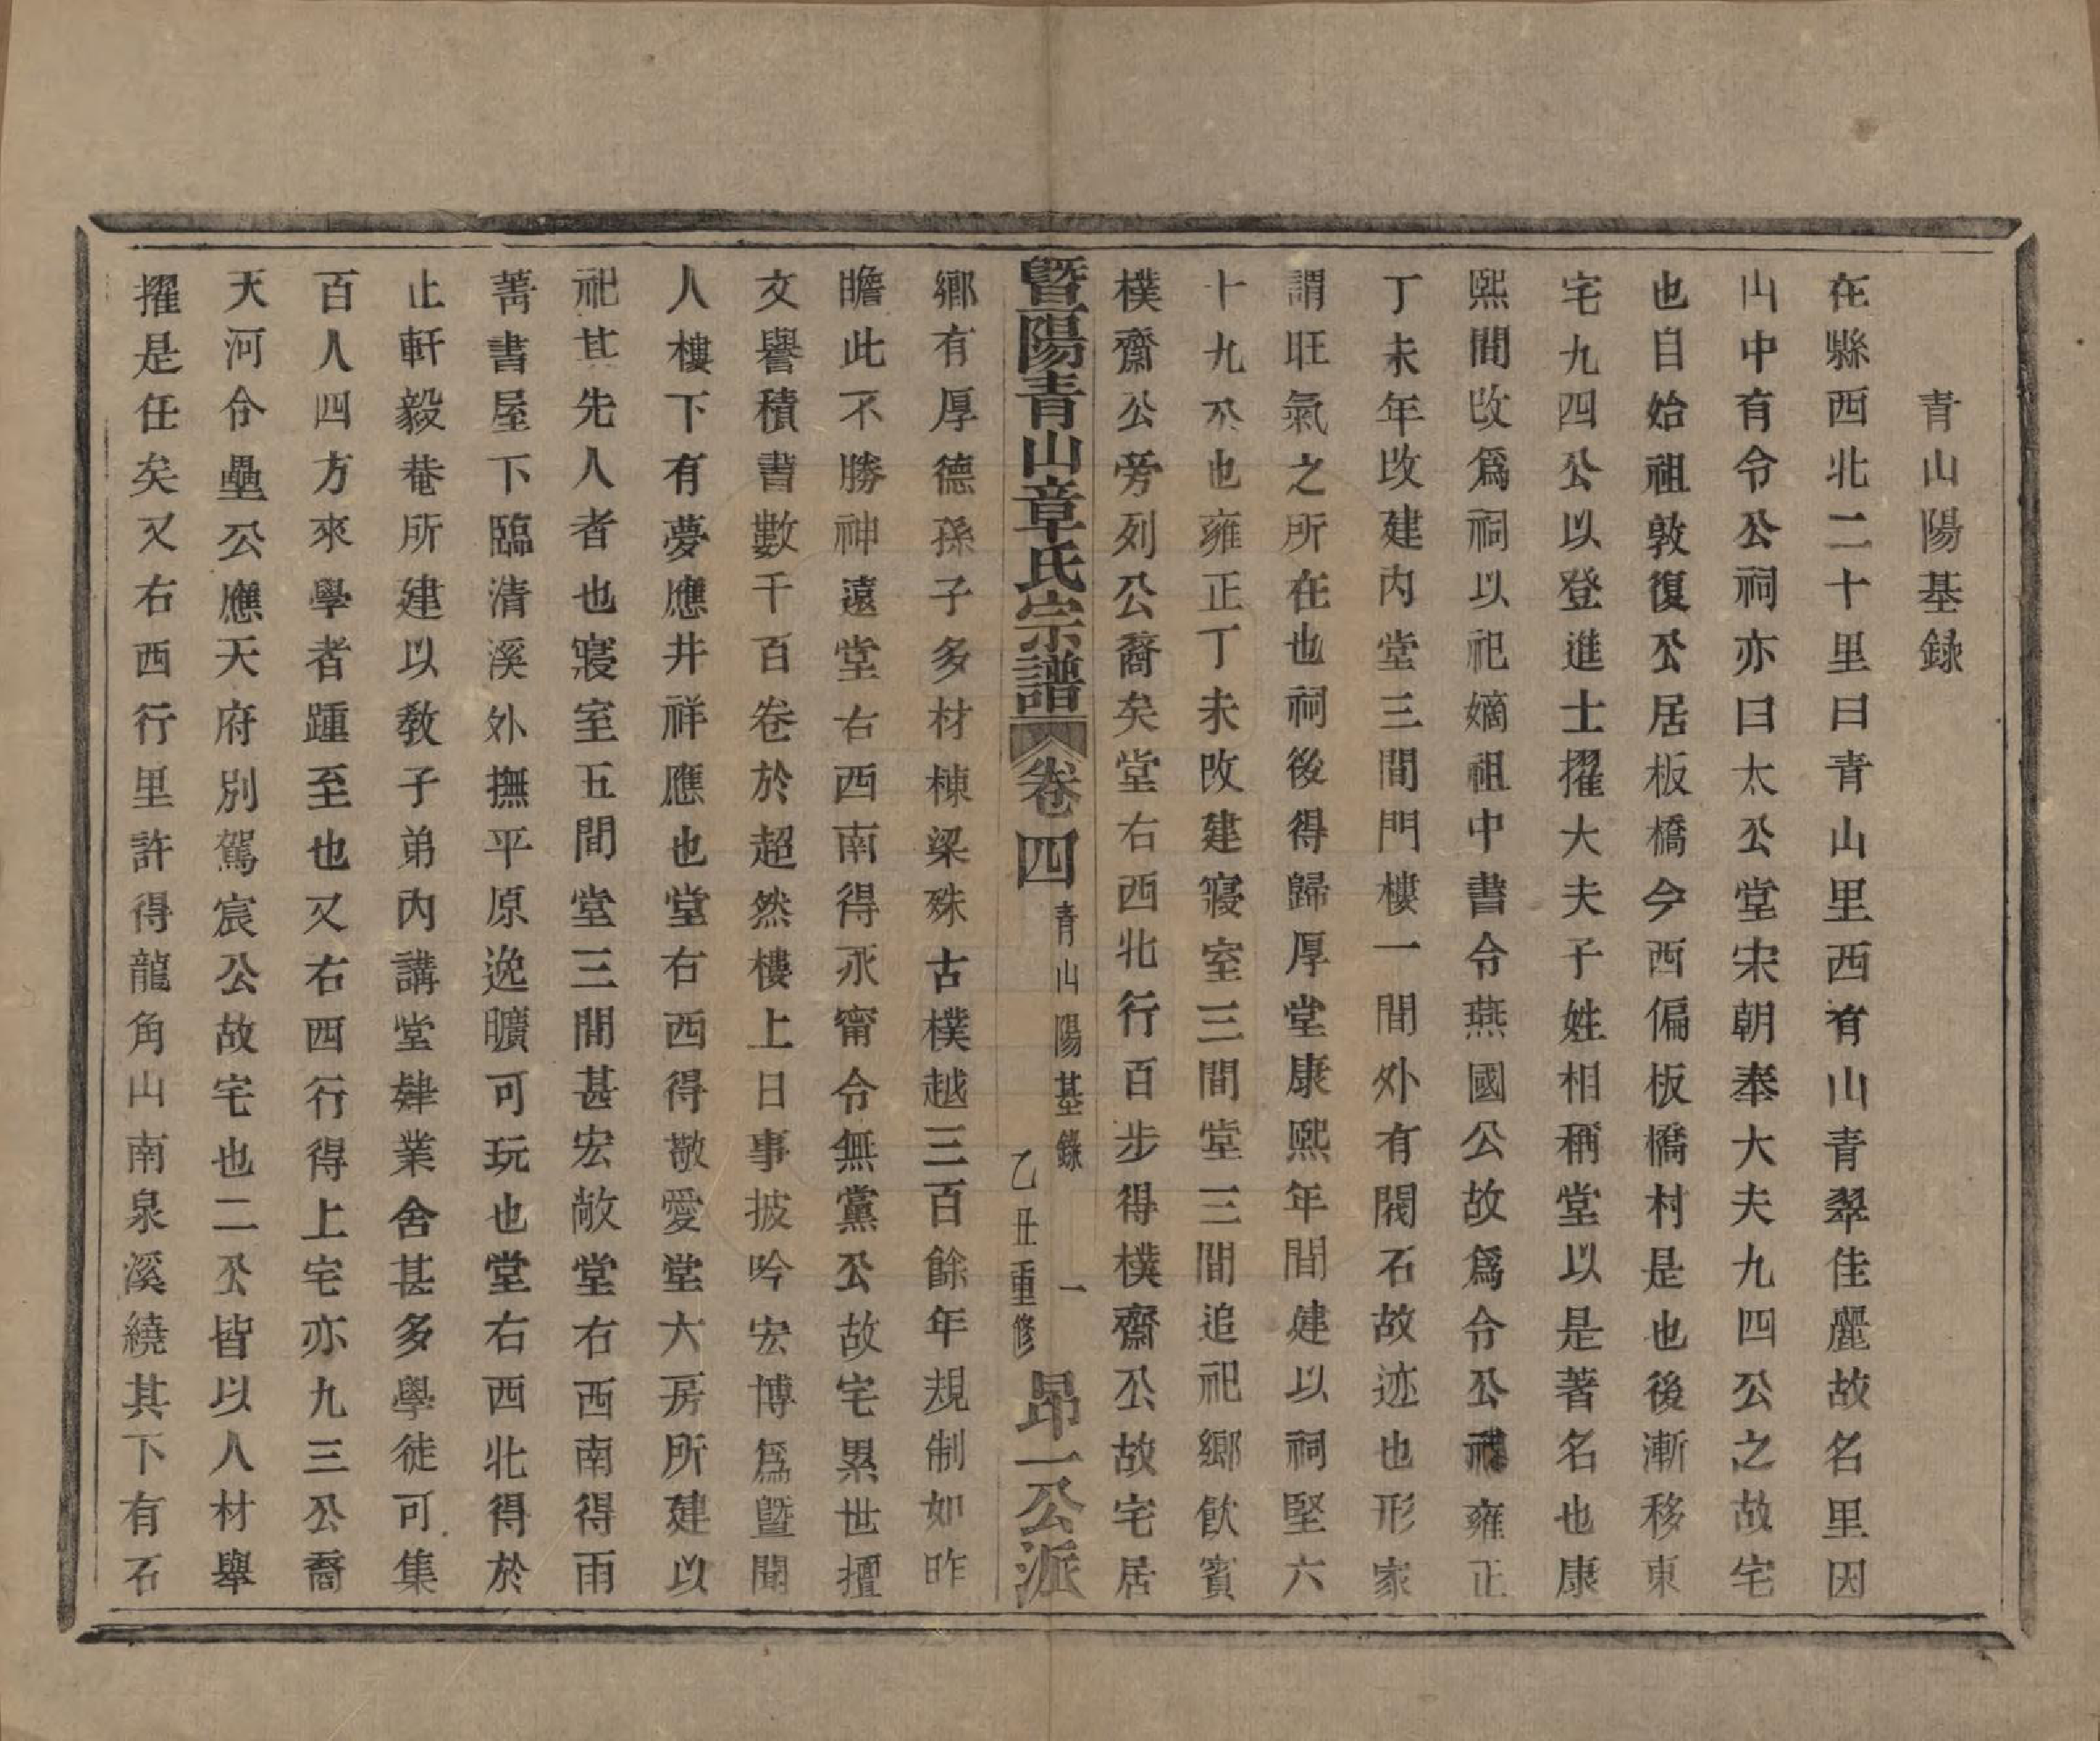 青山陽基錄
在縣西北二十里曰青山里西有山青翠佳麗故名里因
山中有令公祠亦曰太公堂宋朝奉大夫九四公之故宅
也自始祖敦復公居板橋今西偏板橋村是也後漸移東
宅九四公以登進士擢大夫子姓相稱堂以是著名也康
熙間改爲祠以祀嫡祖中書令燕國公故爲令公祠雍正
丁未年改建內堂三間門樓一間外有閥石故迹也形家
謂旺氣之所在也祠後得歸厚堂康熙年間建以祠堅六
十九公也雍正丁未改建寢室三間堂三間追祀鄉飲賓
樸齋公旁列公裔矣堂右西北行百步得樸齋公故宅居
暨陽青山章氏宗譜 卷四 青山陽基錄 一 乙丑重修 昂一公派
鄉有厚德孫子多材棟梁殊古樸越三百餘年規制如昨
瞻此不勝神遠堂右西南得永甯令無黨公故宅累世擅
文譽積書數千百卷於超然樓上日事披吟宏博爲暨聞
人樓下有夢應井祥應也堂右西得敬愛堂六房所建以
祀其先人者也寢室五間堂三間甚宏敞堂右西南得雨
菁書屋下臨清溪外撫平原逸曠可玩也堂右西北得於
止軒毅菴所建以敎子弟內講堂肄業舍甚多學徒可集
百人四方來學者踵至也又右西行得上宅亦九三公裔
天河令壘公應天府別駕宸公故宅也二公皆以人材舉
擢是任矣又右西行里許得龍角山南泉溪繞其下有石